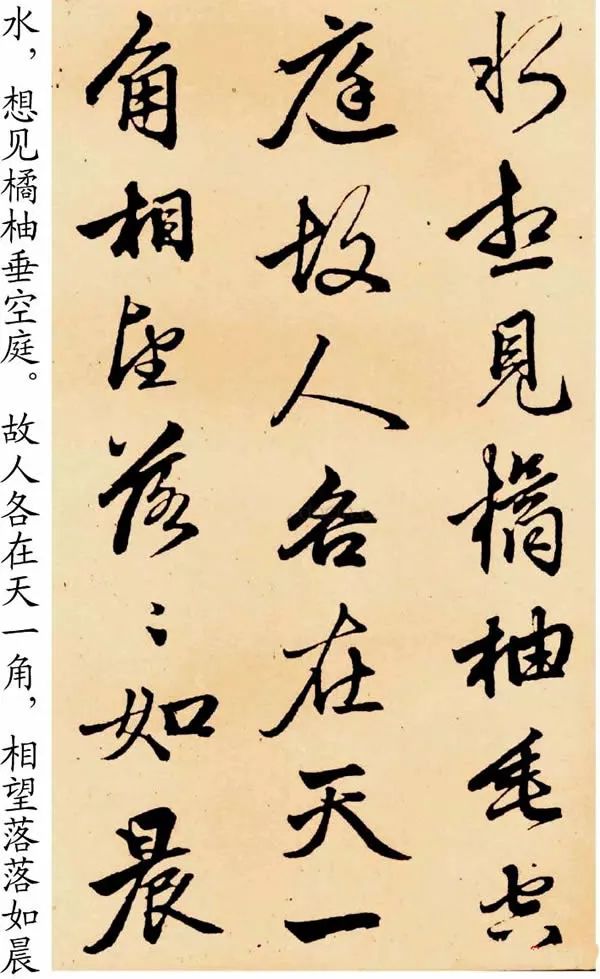 水想見橘柚垂空
庭故人各在天一
角相望落〻如晨
水，想见橘柚垂空庭。故人各在天一角，相望落落如晨